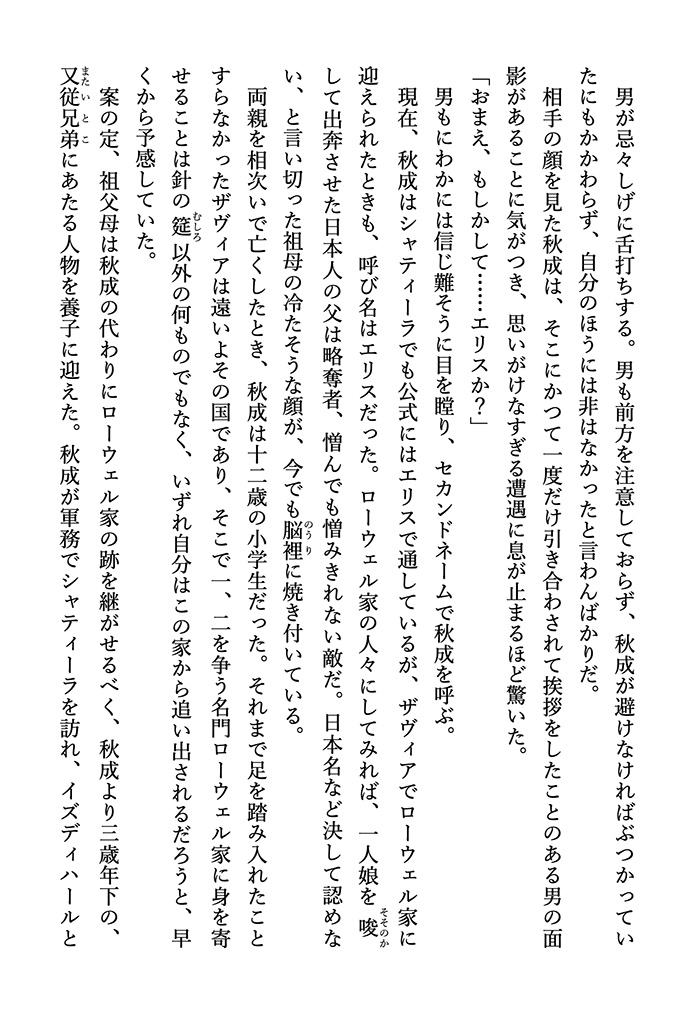 男が忌々しげに舌打ちする。男も前方を注意しておらず、秋成が避けなければぶつかってい
たにもかかわらず、自分のほうには非はなかったと言わんばかりだ。
　相手の顔を見た秋成は、そこにかつて一度だけ引き合わされて挨拶をしたことのある男の面
影があることに気がつき、思いがけなすぎる遭遇に息が止まるほど驚いた。
「おまえ、もしかして……エリスか？」
　男もにわかには信じ難そうに目を瞠り、セカンドネームで秋成を呼ぶ。
　現在、秋成はシャティーラでも公式にはエリスで通しているが、ザヴィアでローウェル家に
迎えられたときも、呼び名はエリスだった。ローウェル家の人々にしてみれば、一人娘を唆（そそのか）
して出奔させた日本人の父は略奪者、憎んでも憎みきれない敵だ。日本名など決して認めな
い、と言い切った祖母の冷たそうな顔が、今でも脳裡（のうり）に焼き付いている。
　両親を相次いで亡くしたとき、秋成は十二歳の小学生だった。それまで足を踏み入れたこと
すらなかったザヴィアは遠いよその国であり、そこで一、二を争う名門ローウェル家に身を寄
せることは針の筵（むしろ）以外の何ものでもなく、いずれ自分はこの家から追い出されるだろうと、早
くから予感していた。
　案の定、祖父母は秋成の代わりにローウェル家の跡を継がせるべく、秋成より三歳年下の、
又従兄弟（またいとこ）にあたる人物を養子に迎えた。秋成が軍務でシャティーラを訪れ、イズディハールと